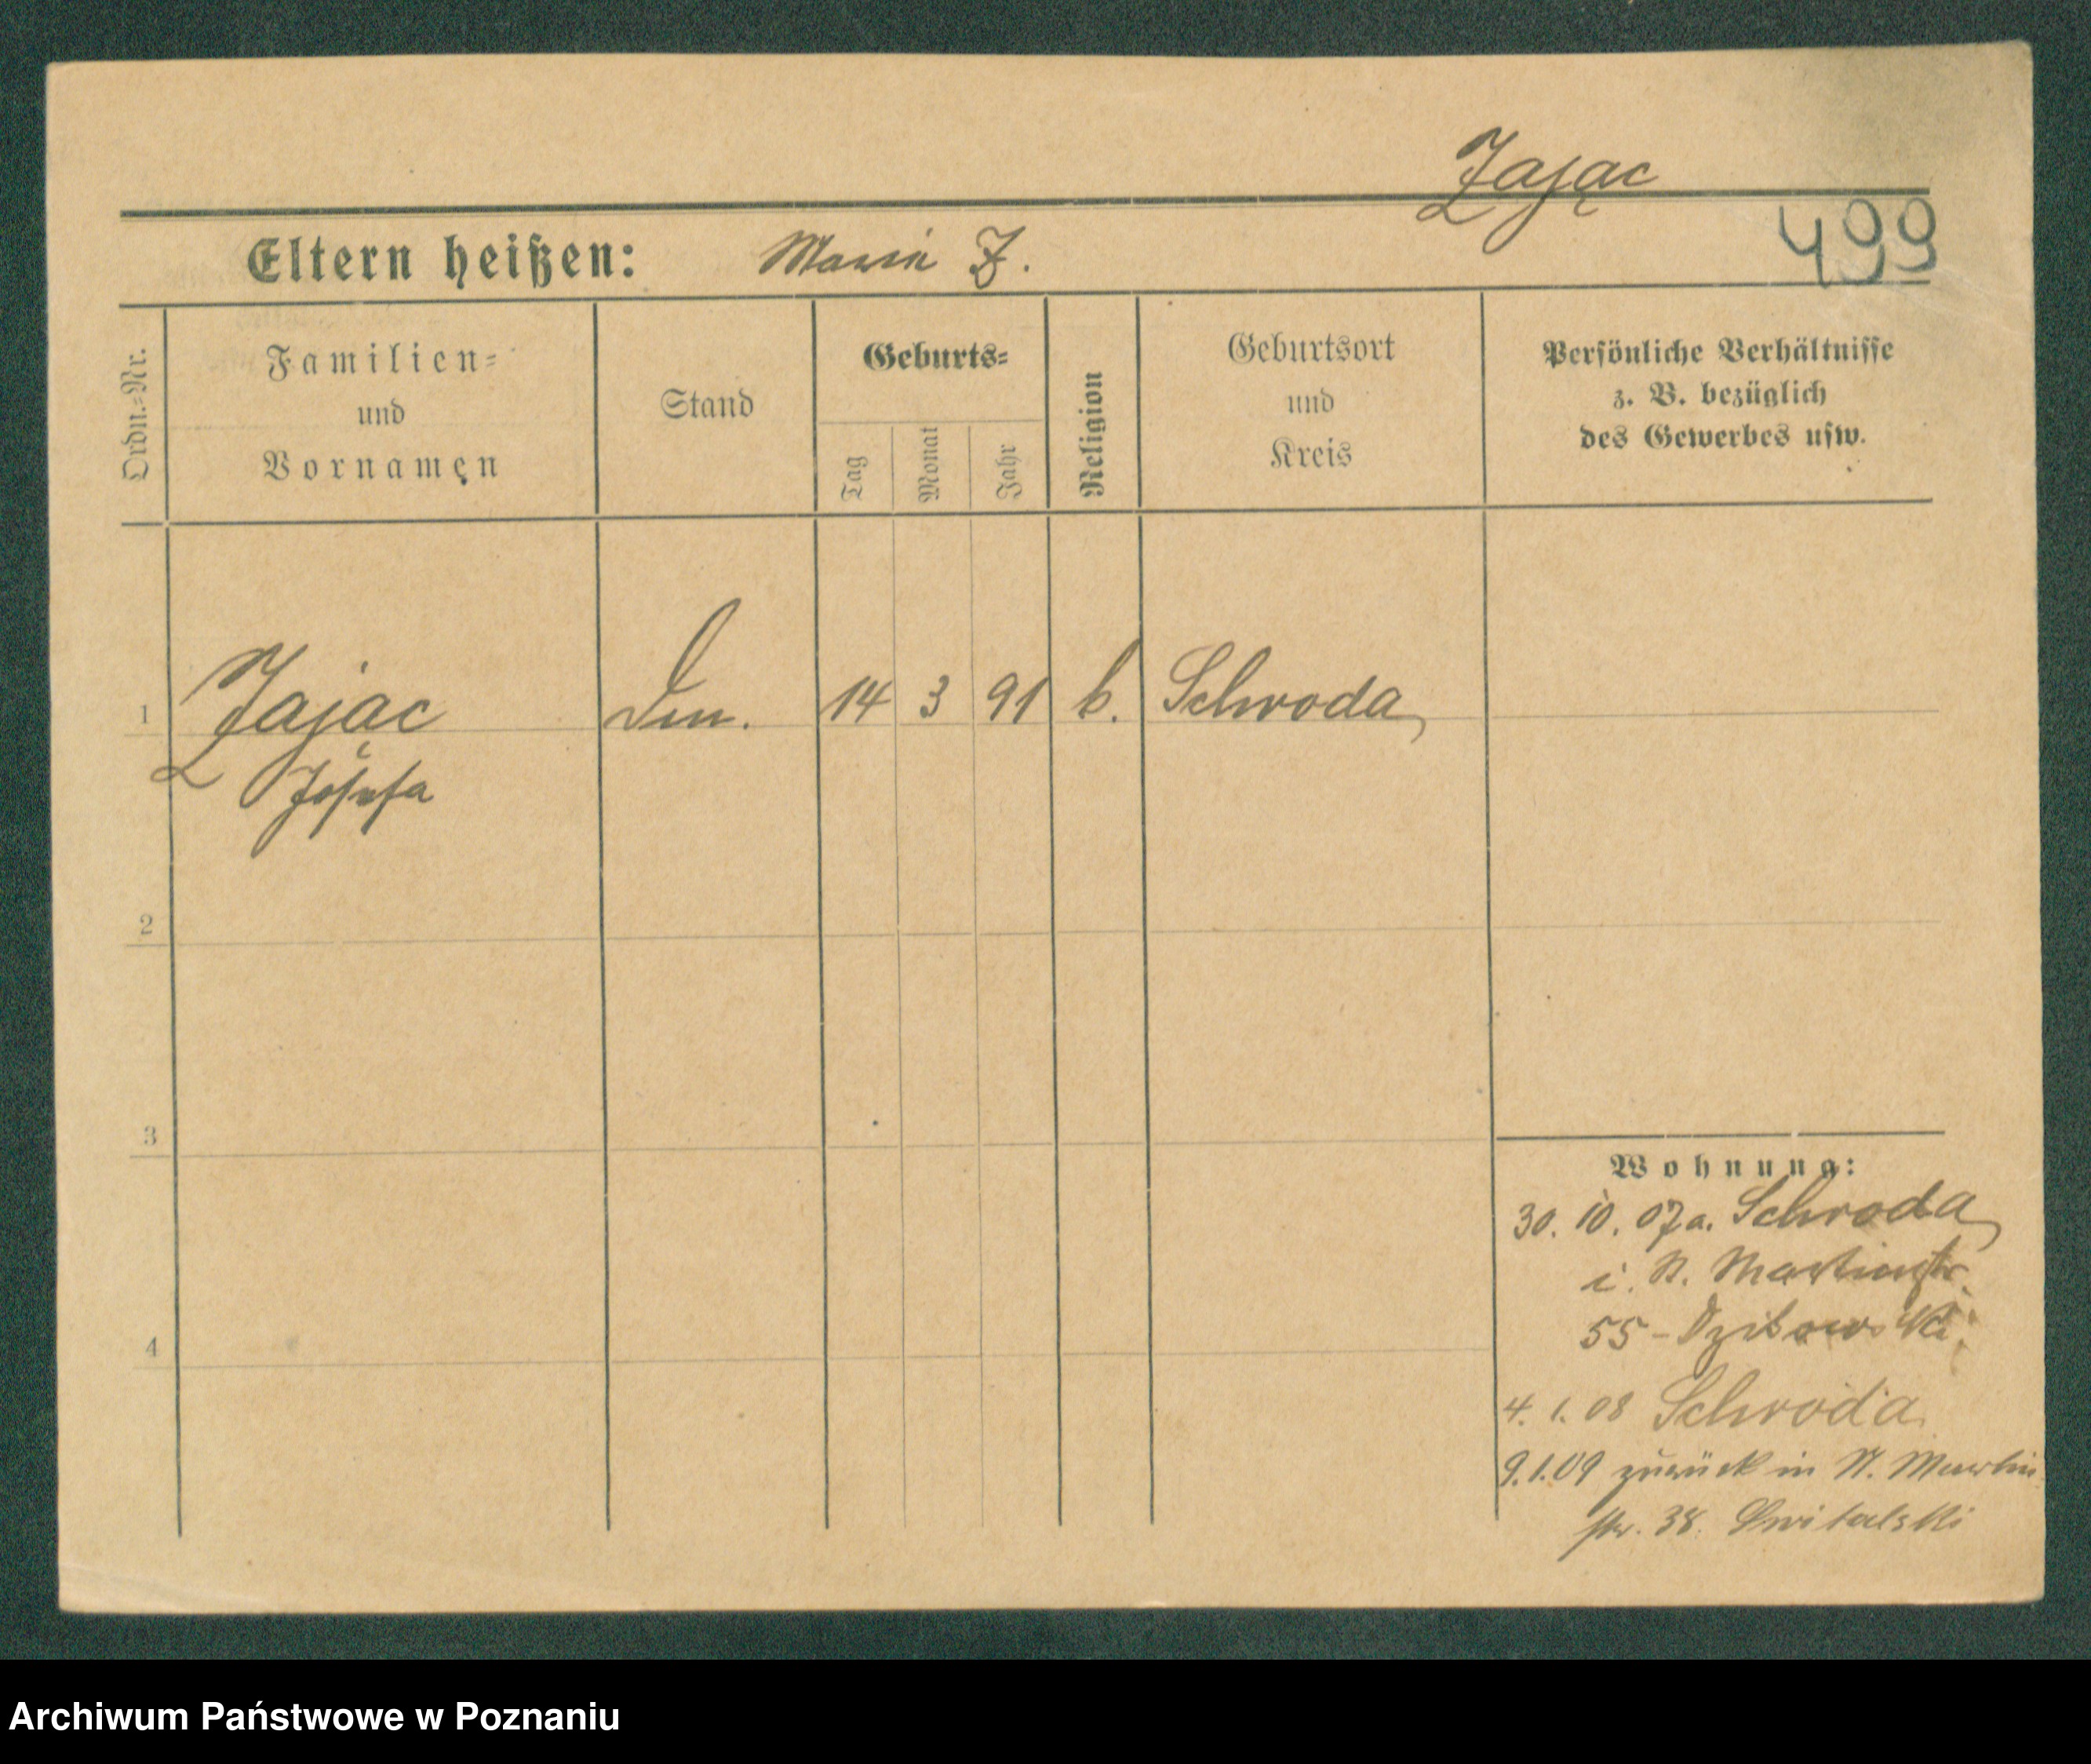 Zając
499
Eltern heißen: Maria Z.
Ordn.-Nr.
Familien-
und
Vornamen
Stand
Geburts-
Tag
Monat
Jahr
Religion
Geburtsort
und
Kreis
Persönliche Verhältnisse
z. B. bezüglich
des Gewerbes usw.
1 Zając 14 3 91 k. Schroda
Josefa
2
3
4
Wohnung:
30. 10. 07 a. Schroda
i. St. Martinstr.
55 -
4. 1. 08 Schroda
9.1.09 zurück in St. Martin
str. 38. Switalski
Archiwum Państwowe w Poznaniu